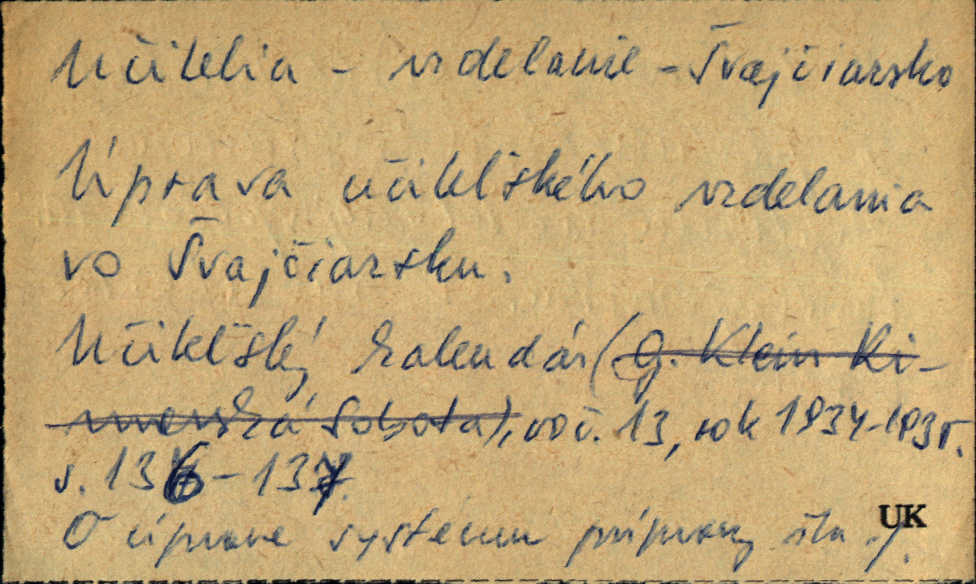 Učitelia - vzdelanie - Švajčiarsko
Úprava učiteľského vzdelania
vo Švajčiarsku.
Učiteľský kalendár (G. Klein Ri-
mavská Sobota), roč. 13, rok 1934-1935.
s. 136-137.
O úprave systému prípravy
UK